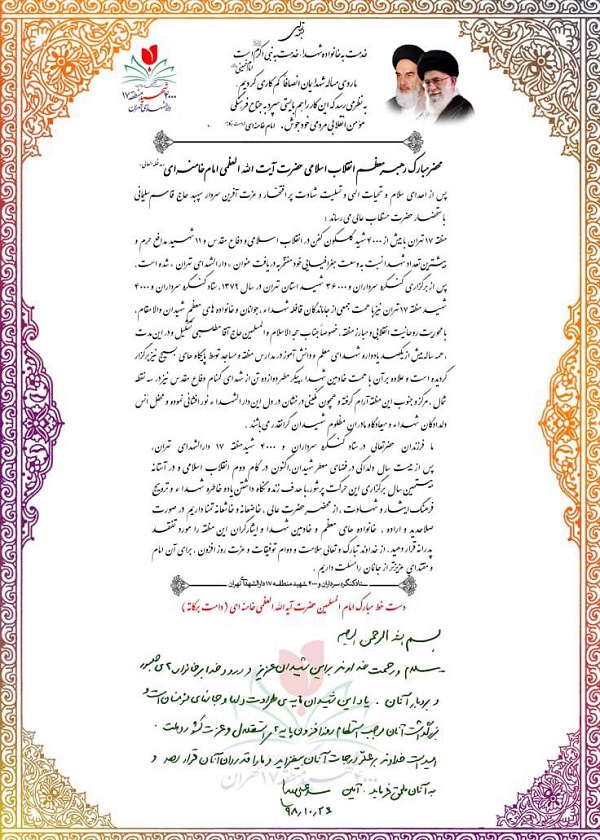 خدمت به خانواده شهدا، خدمت به نبی اکرم است
امام خمینی
ما روی مساله شهدایمان انصافا کم کاری کردیم،
به نظر می رسد که این کار را هم بایستی سپرد به جناح فرهنگی
مؤمن انقلابی مردمی خودجوش، امام خامنه ای (دامت برکاته)
۴۰۰۰ شهید منطقه ۱۷
دارالشهدای تهران
محضر مبارک رهبر معظم انقلاب اسلامی حضرت آیت الله العظمی امام خامنه ای (مد ظله العالی)
پس از اهدای سلام و تحیات الهی و تسلیت شهادت پر افتخار و عزت آفرین سردار سپهبد حاج قاسم سلیمانی
باستحضار حضرت مستطاب عالی می رساند :
منطقه ۱۷ تهران با بیش از ۴۰۰۰ شهید گلگون کفن در انقلاب اسلامی و دفاع مقدس و ۱۱ شهید مدافع حرم و
بیشترین تعداد شهدا نسبت به وسعت جغرافیایی خود مفتخر به دریافت عنوان « دارالشهدای تهران » شده است.
پس از برگزاری کنگره سرداران و ۳۶۰۰۰ شهید استان تهران در سال ۱۳۷۹، ستاد کنگره سرداران و ۴۰۰۰
شهید منطقه ۱۷ تهران نیز با همت جمعی از جاماندگان قافله شهداء، جوانان و خانواده های معظم شهیدان والامقام،
با محوریت روحانیت انقلابی و مبارز منطقه، خصوصاً جناب حجه الاسلام و المسلمین حاج آقا مطلبی تشکیل و در این مدت
همه ساله بیش از یکصد یادواره شهدای معلم و دانش آموز در مدارس منطقه و مساجد توسط پایگاه های بسیج نیز برگزار
گردیده است و علاوه بر آن با همت خادمین شهدا، پیکر مطهر دوازده تن از شهدای گمنام دفاع مقدس نیز در سه نقطه
شمال، مرکز و جنوب این منطقه آرام گرفته و همچون نگینی درخشان در دل این دارالشهداء نور افشانی نموده و محفل انس
دلدادگان شهداء و میعادگاه مادران مظلوم شهیدان گرانقدر می باشند.
ما فرزندان حضرتعالی در ستاد کنگره سرداران و ۴۰۰۰ شهید منطقه ۱۷ دارالشهدای تهران،
پس از بیست سال دلدادگی در فضای معطر شهیدان، اکنون در گام دوم انقلاب اسلامی و در آستانه
بیستمین سال برگزاری این حرکت پرشور با هدف زنده نگاه داشتن یاد و خاطره شهداء و ترویج
فرهنگ ایثار و شهادت، از محضر حضرت عالی، خاضعانه و خاشعانه تمنا داریم در صورت
صلاحدید و اراده، خانواده های معظم و خادمین شهدا و ایثارگران این منطقه را مورد تفقد
پدرانه قرار دهید. از خداوند تبارک و تعالی سلامت و دوام توفیقات و عزت روز افزون، برای آن امام
و مقتدای عزیزتر از جانمان را مسئلت داریم.
ستاد کنگره سرداران و ۴۰۰۰ شهید منطقه ۱۷ دارالشهدای تهران
دست خط مبارک امام المسلمین حضرت آیه الله العظمی خامنه ای (دامت برکاته)
بسم الله الرحمن الرحیم
سلام و رحمت خداوند بر این شهیدان عزیز و درود خدا بر خانواده‌های صبور
و بردبار آنان. یاد این شهیدان مایه‌ی طراوت دلها و جانهای مؤمنان است و
بزرگداشت آنان موجب استحکام روزافزون پایه‌های استقلال و عزت کشور و ملت.
امید است خداوند بر علو درجات آنان بیفزاید و ما را قدردان آنان قرار دهد و
به آنان ملحق فرماید. آمین
۹۸،۱۰،۲۶
۴۰۰۰ شهید منطقه ۱۷ تهران